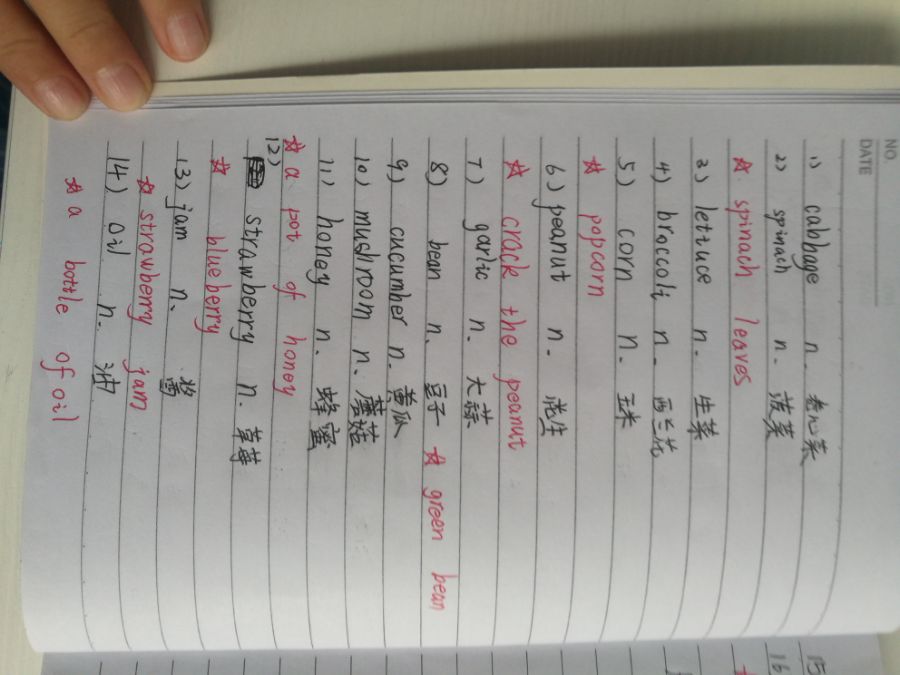 NO.
DATE
1) cabbage n. 卷心菜
2) spinach n. 菠菜
☆ spinach leaves
3) lettuce n. 生菜
4) broccoli n. 西兰花
5) corn n. 玉米
☆ popcorn
6) peanut n. 花生
☆ crack the peanut
7) garlic n. 大蒜
8) bean n. 豆子 ☆ green bean
9) cucumber n. 黄瓜
10) mushroom n. 蘑菇
11) honey n. 蜂蜜
☆ a pot of honey
12) strawberry n. 草莓
☆ blueberry
13) jam n. 酱
☆ strawberry jam
14) oil n. 油
☆ a bottle of oil
15
16